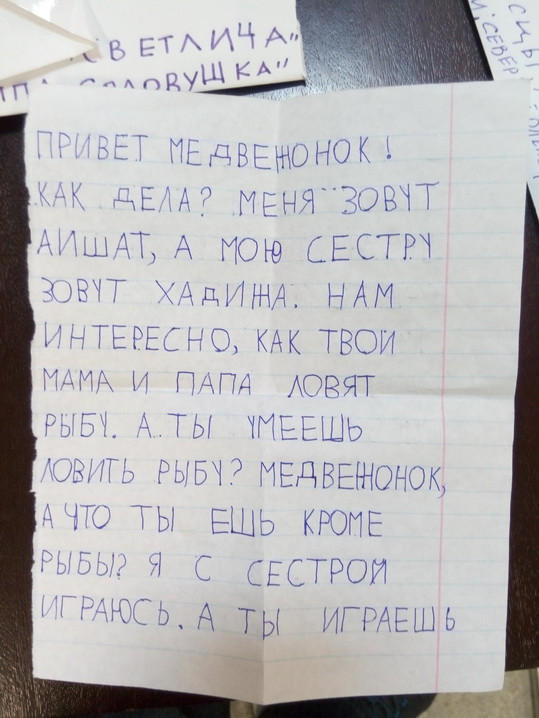 СВЕТЛИЧА"
СОЛОВУШКА"
СЕВЕР
ПРИВЕТ МЕДВЕЖОНОК!
КАК ДЕЛА? МЕНЯ ЗОВУТ
АИШАТ, А МОЮ СЕСТРУ
ЗОВУТ ХАДИЖА. НАМ
ИНТЕРЕСНО, КАК ТВОИ
МАМА И ПАПА ЛОВЯТ
РЫБУ. А ТЫ УМЕЕШЬ
ЛОВИТЬ РЫБУ? МЕДВЕЖОНОК,
А ЧТО ТЫ ЕШЬ КРОМЕ
РЫБЫ? Я С СЕСТРОЙ
ИГРАЮСЬ. А ТЫ ИГРАЕШЬ